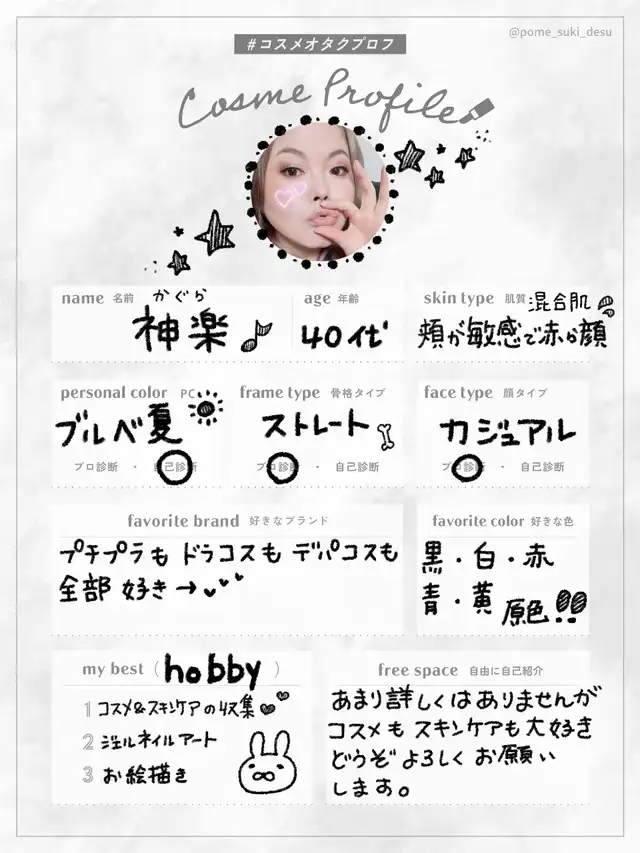 @pome_suki_desu
#コスメオタクプロフ
Cosme Profile
name 名前 かぐら
神楽
age 年齢
40代
skin type 肌質 混合肌
頬が敏感で赤ら顔
personal color PC
ブルベ夏
プロ診断 ・ 自己診断
frame type 骨格タイプ
ストレート
プロ診断 ・ 自己診断
face type 顔タイプ
カジュアル
プロ診断 ・ 自己診断
favorite brand 好きなブランド
プチプラも ドラコスも デパコスも
全部 好き→
favorite color 好きな色
黒・白・赤
青・黄 原色!!
my best ( hobby )
1 コスメ&スキンケアの収集
2 ジェルネイルアート
3 お絵描き
free space 自由に自己紹介
あまり詳しくはありませんが
コスメも スキンケアも大好き
どうぞ よろしく お願い
します。